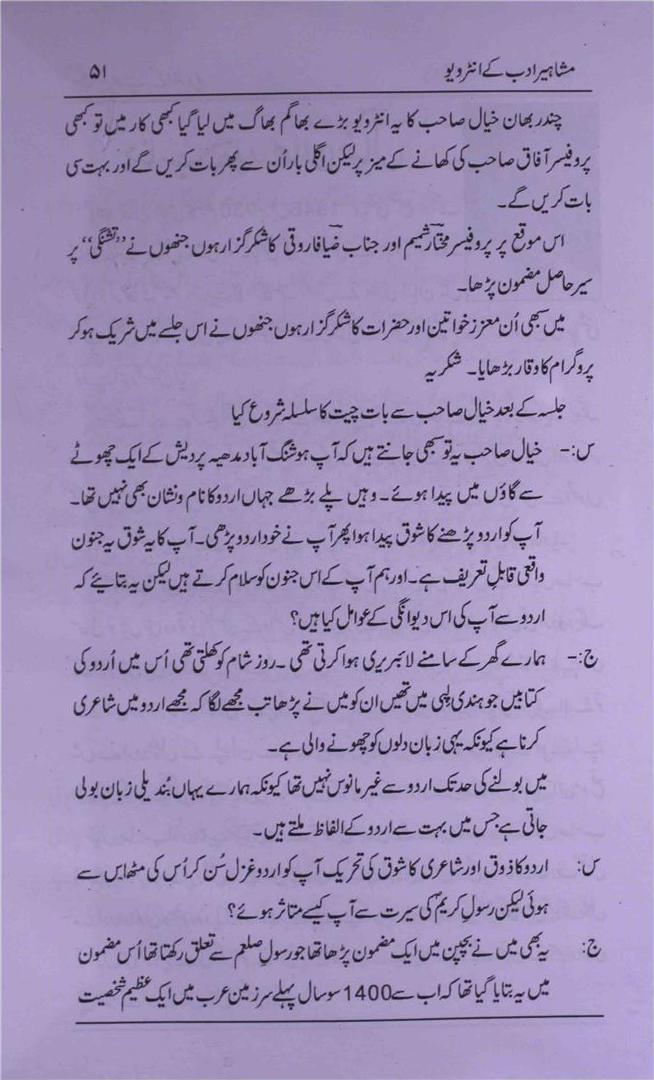 مشاہیر ادب کے انٹرویو ۵۱
چندر بھان خیال صاحب کا یہ انٹرویو بڑے بھاگم بھاگ میں لیا گیا کبھی کار میں تو کبھی
پروفیسر آفاق صاحب کی کھانے کے میز پر لیکن اگلی بار اُن سے پھر بات کریں گے اور بہت سی
بات کریں گے۔
اس موقع پر پروفیسر مختار شمیم اور جناب ضیا فاروقی کا شکر گزار ہوں جنھوں نے ’’تشنگی‘‘ پر
سیر حاصل مضمون پڑھا۔
میں سبھی اُن معزز خواتین اور حضرات کا شکر گزار ہوں جنھوں نے اس جلسے میں شریک ہو کر
پروگرام کا وقار بڑھایا۔ شکریہ
جلسہ کے بعد خیال صاحب سے بات چیت کا سلسلہ شروع کیا
س:- خیال صاحب یہ تو سبھی جانتے ہیں کہ آپ ہوشنگ آباد مدھیہ پردیش کے ایک چھوٹے
سے گاؤں میں پیدا ہوئے۔ وہیں پلے بڑھے جہاں اردو کا نام و نشان بھی نہیں تھا۔
آپ کو اردو پڑھنے کا شوق پیدا ہوا پھر آپ نے خود اردو پڑھی۔ آپ کا یہ شوق یہ جنون
واقعی قابلِ تعریف ہے۔ اور ہم آپ کے اس جنون کو سلام کرتے ہیں لیکن یہ بتائیے کہ
اردو سے آپ کی اس دیوانگی کے عوامل کیا ہیں؟
ج:- ہمارے گھر کے سامنے لائبریری ہوا کرتی تھی۔ روز شام کو کھلتی تھی اُس میں اُردو کی
کتابیں جو ہندی لپی میں تھیں ان کو میں نے پڑھا تب مجھے لگا کہ مجھے اردو میں شاعری
کرنا ہے کیونکہ یہی زبان دلوں کو چھونے والی ہے۔
میں بولنے کی حد تک اردو سے غیر مانوس نہیں تھا کیونکہ ہمارے یہاں بُندیلی زبان بولی
جاتی ہے جس میں بہت سے اردو کے الفاظ ملتے ہیں۔
س: اردو کا ذوق اور شاعری کا شوق کی تحریک آپ کو اردو غزل سُن کر اُس کی مٹھاس سے
ہوئی لیکن رسولِ کریمؐ کی سیرت سے آپ کیسے متاثر ہوئے؟
ج: یہ بھی میں نے بچپن میں ایک مضمون پڑھا تھا جو رسولِ صلعم سے تعلق رکھتا تھا اُس مضمون
میں یہ بتایا گیا تھا کہ اب سے 1400 سو سال پہلے سرزمین عرب میں ایک عظیم شخصیت